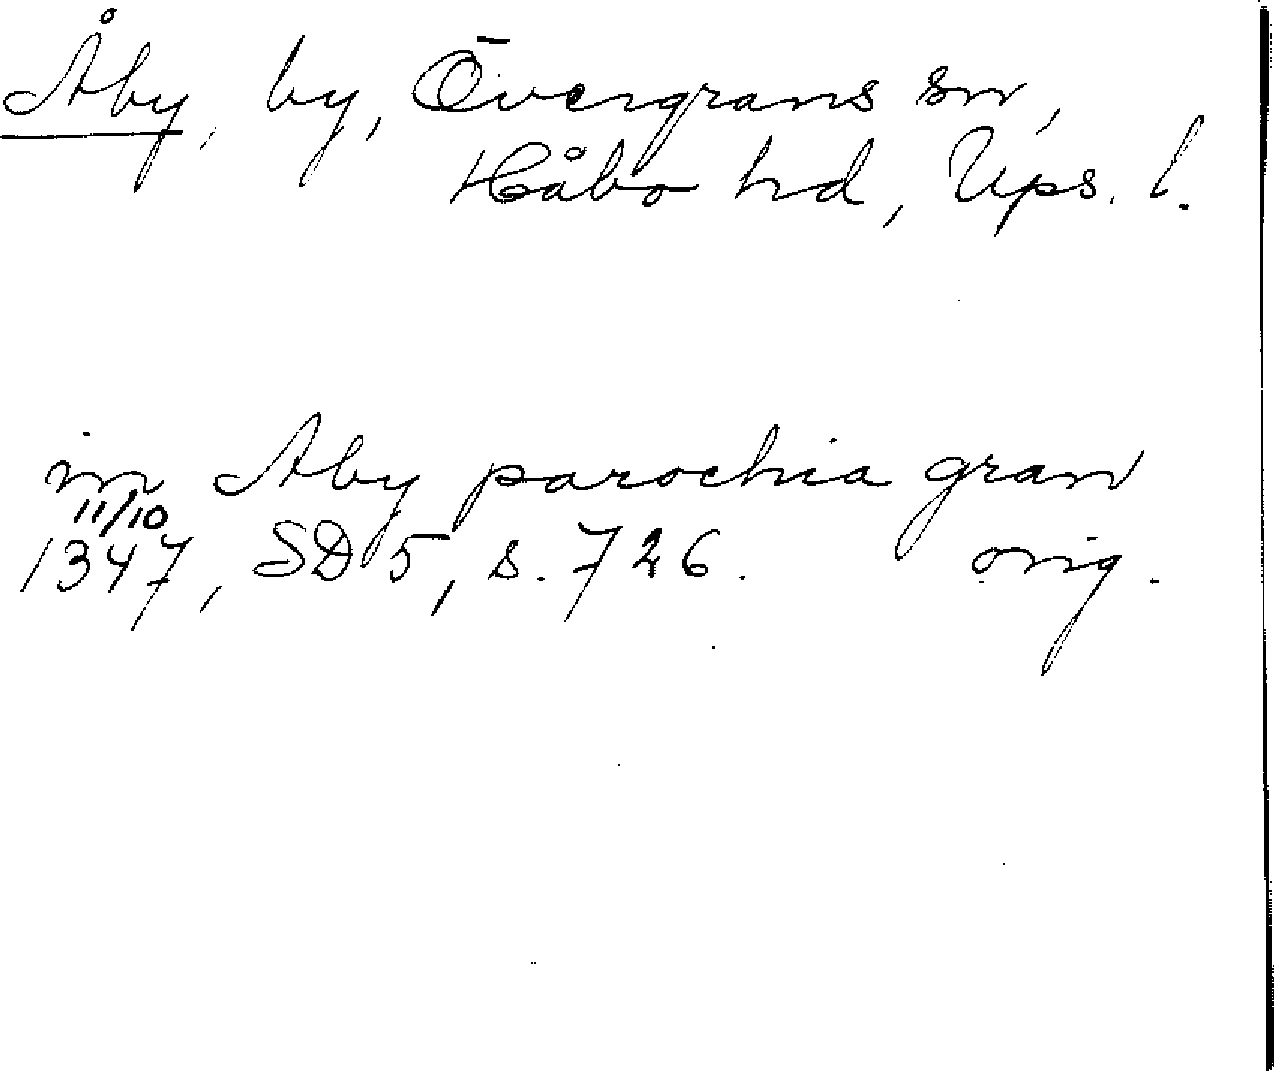 Åby, by, Övergrans sn,
Håbo hd, Ups. l.
in Aby parochia gran
11/10
1347, SD 5, s. 726. orig.